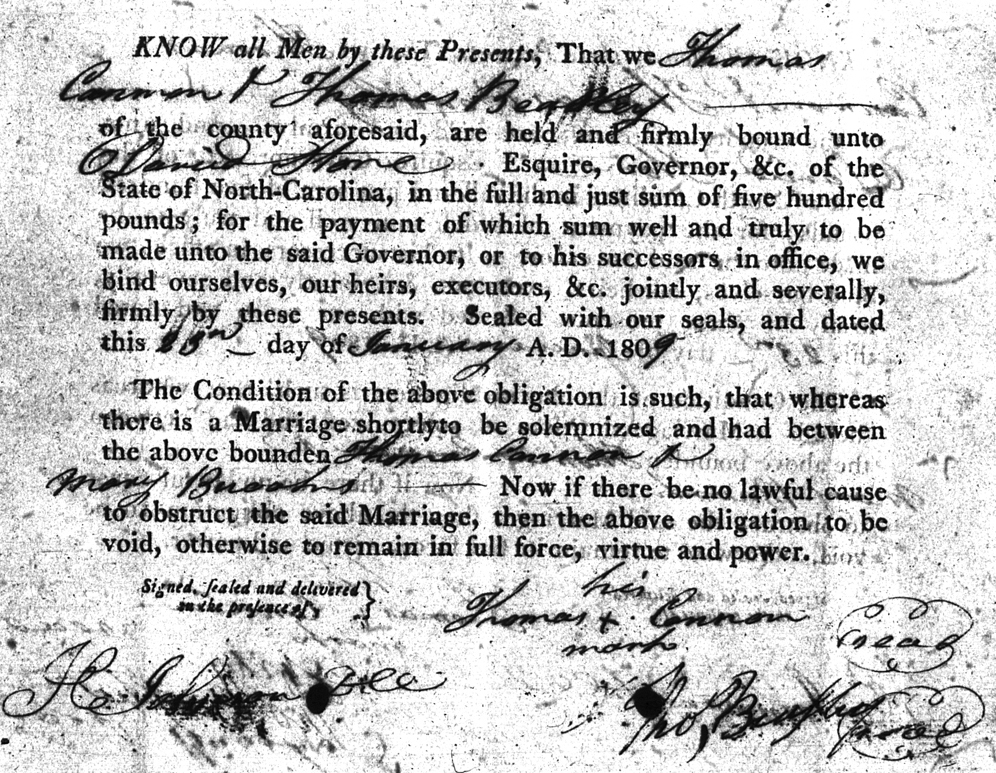 KNOW all Men by these Presents, That we Thomas
Cannon & Thomas Beasley
of the county aforesaid, are held and firmly bound unto
David Stone Esquire, Governor, &c. of the
State of North-Carolina, in the full and just sum of five hundred
pounds; for the payment of which sum well and truly to be
made unto the said Governor, or to his successors in office, we
bind ourselves, our heirs, executors, &c. jointly and severally,
firmly by these presents. Sealed with our seals, and dated
this day of January A. D. 1809
The Condition of the above obligation is such, that whereas
there is a Marriage shortly to be solemnized and had between
the above bounden Thomas Cannon &
Mary Now if there be no lawful cause
to obstruct the said Marriage, then the above obligation to be
void, otherwise to remain in full force, virtue and power.
Signed, sealed and delivered
in the presence of
his
Thomas + Cannon seal
mark
Tho Beasley seal